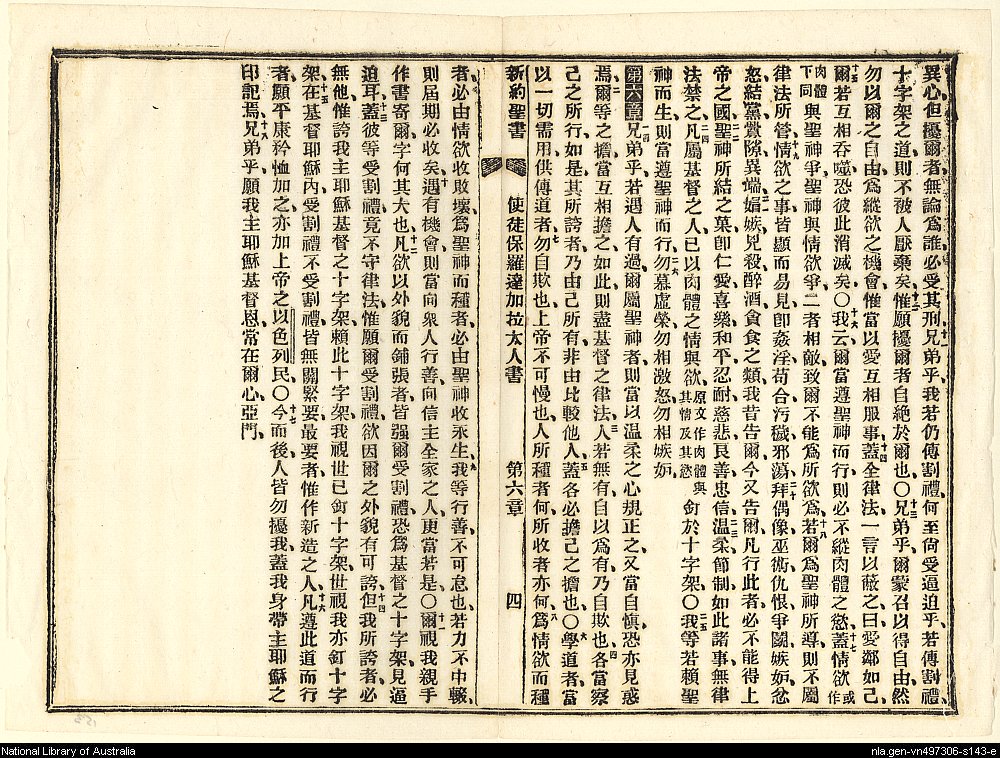 異心、但擾爾者、無論爲誰、必受其刑、十一兄弟乎、我若仍傳割禮、何至尙受逼迫乎、若傳割禮、
十字架之道、則不被人厭棄矣、十二惟願擾爾者自絕於爾也、〇十三兄弟乎、爾蒙召以得自由、然
勿以爾之自由、爲縱欲之機會、惟當以愛互相服事、十四蓋全律法一言以蔽之曰、愛鄰如己、
十五爾若互相吞噬、恐彼此消滅矣、〇十六我云、爾當遵聖神而行、則必不縱肉體之慾、十七蓋情欲或作
肉體下同與聖神爭、聖神與情欲爭、二者相敵、致爾不能爲所欲爲、十八若爾爲聖神所導、則不屬
律法所管、十九情欲之事、皆顯而易見、卽姦淫、苟合、污穢、邪蕩、二十拜偶像、巫術、仇恨、爭鬭、嫉妒、忿
怒、結黨、釁隙、異端、二一媢嫉、兇殺、醉酒、貪食之類、我昔告爾、今又告爾、凡行此者、必不能得上
帝之國、二二聖神所結之菓、卽仁愛、喜樂、和平、忍耐、慈悲、良善、忠信、二三温柔、節制、如此諸事、無律
法禁之、二四凡屬基督之人、已以肉體之情與欲、原文作肉體與其情及其慾釘於十字架、〇二五我等若賴聖
神而生、則當遵聖神而行、二六勿慕虛榮、勿相激怒、勿相嫉妒、
第六章一兄弟乎、若遇人有過、爾屬聖神者、則當以温柔之心規正之、又當自愼、恐亦見惑
焉、二爾等之擔、當互相擔之、如此則盡基督之律法、三人若無有、自以爲有、乃自欺也、四各當察
己之所行、如是其所誇者、乃由己所有、非由比較他人、五蓋各必擔己之擔也、〇六學道者、當
以一切需用、供傳道者、七勿自欺也、上帝不可慢也、人所種者何、所收者亦何、八爲情欲而種
新約聖書 使徒保羅達加拉太人書 第六章 四
者、必由情欲收敗壞、爲聖神而種者、必由聖神收永生、九我等行善、不可怠也、若力不中輟、
則屆期必收矣、十遇有機會、則當向衆人行善、向信主全家之人、更當若是、〇十一爾視我親手
作書寄爾、字何其大也、十二凡欲以外貌而鋪張者、皆强爾受割禮、恐爲基督之十字架、見逼
迫耳、十三蓋彼等受割禮、竟不守律法、惟願爾受割禮、欲因爾之外貌有可誇、十四但我所誇者、必
無他、惟誇我主耶穌基督之十字架、賴此十字架、我視世已釘十字架、世視我亦釘十字
架、十五在基督耶穌內、受割禮不受割禮、皆無關緊要、最要者、惟作新造之人、十六凡遵此道而行
者、願平康矜恤加之、亦加上帝之以色列民、〇十七今而後、人皆勿擾我、蓋我身帶主耶穌之
印記焉、十八兄弟乎、願我主耶穌基督恩、常在爾心、亞門、
National Library of Australia
nla.gen-vn497306-s143-e